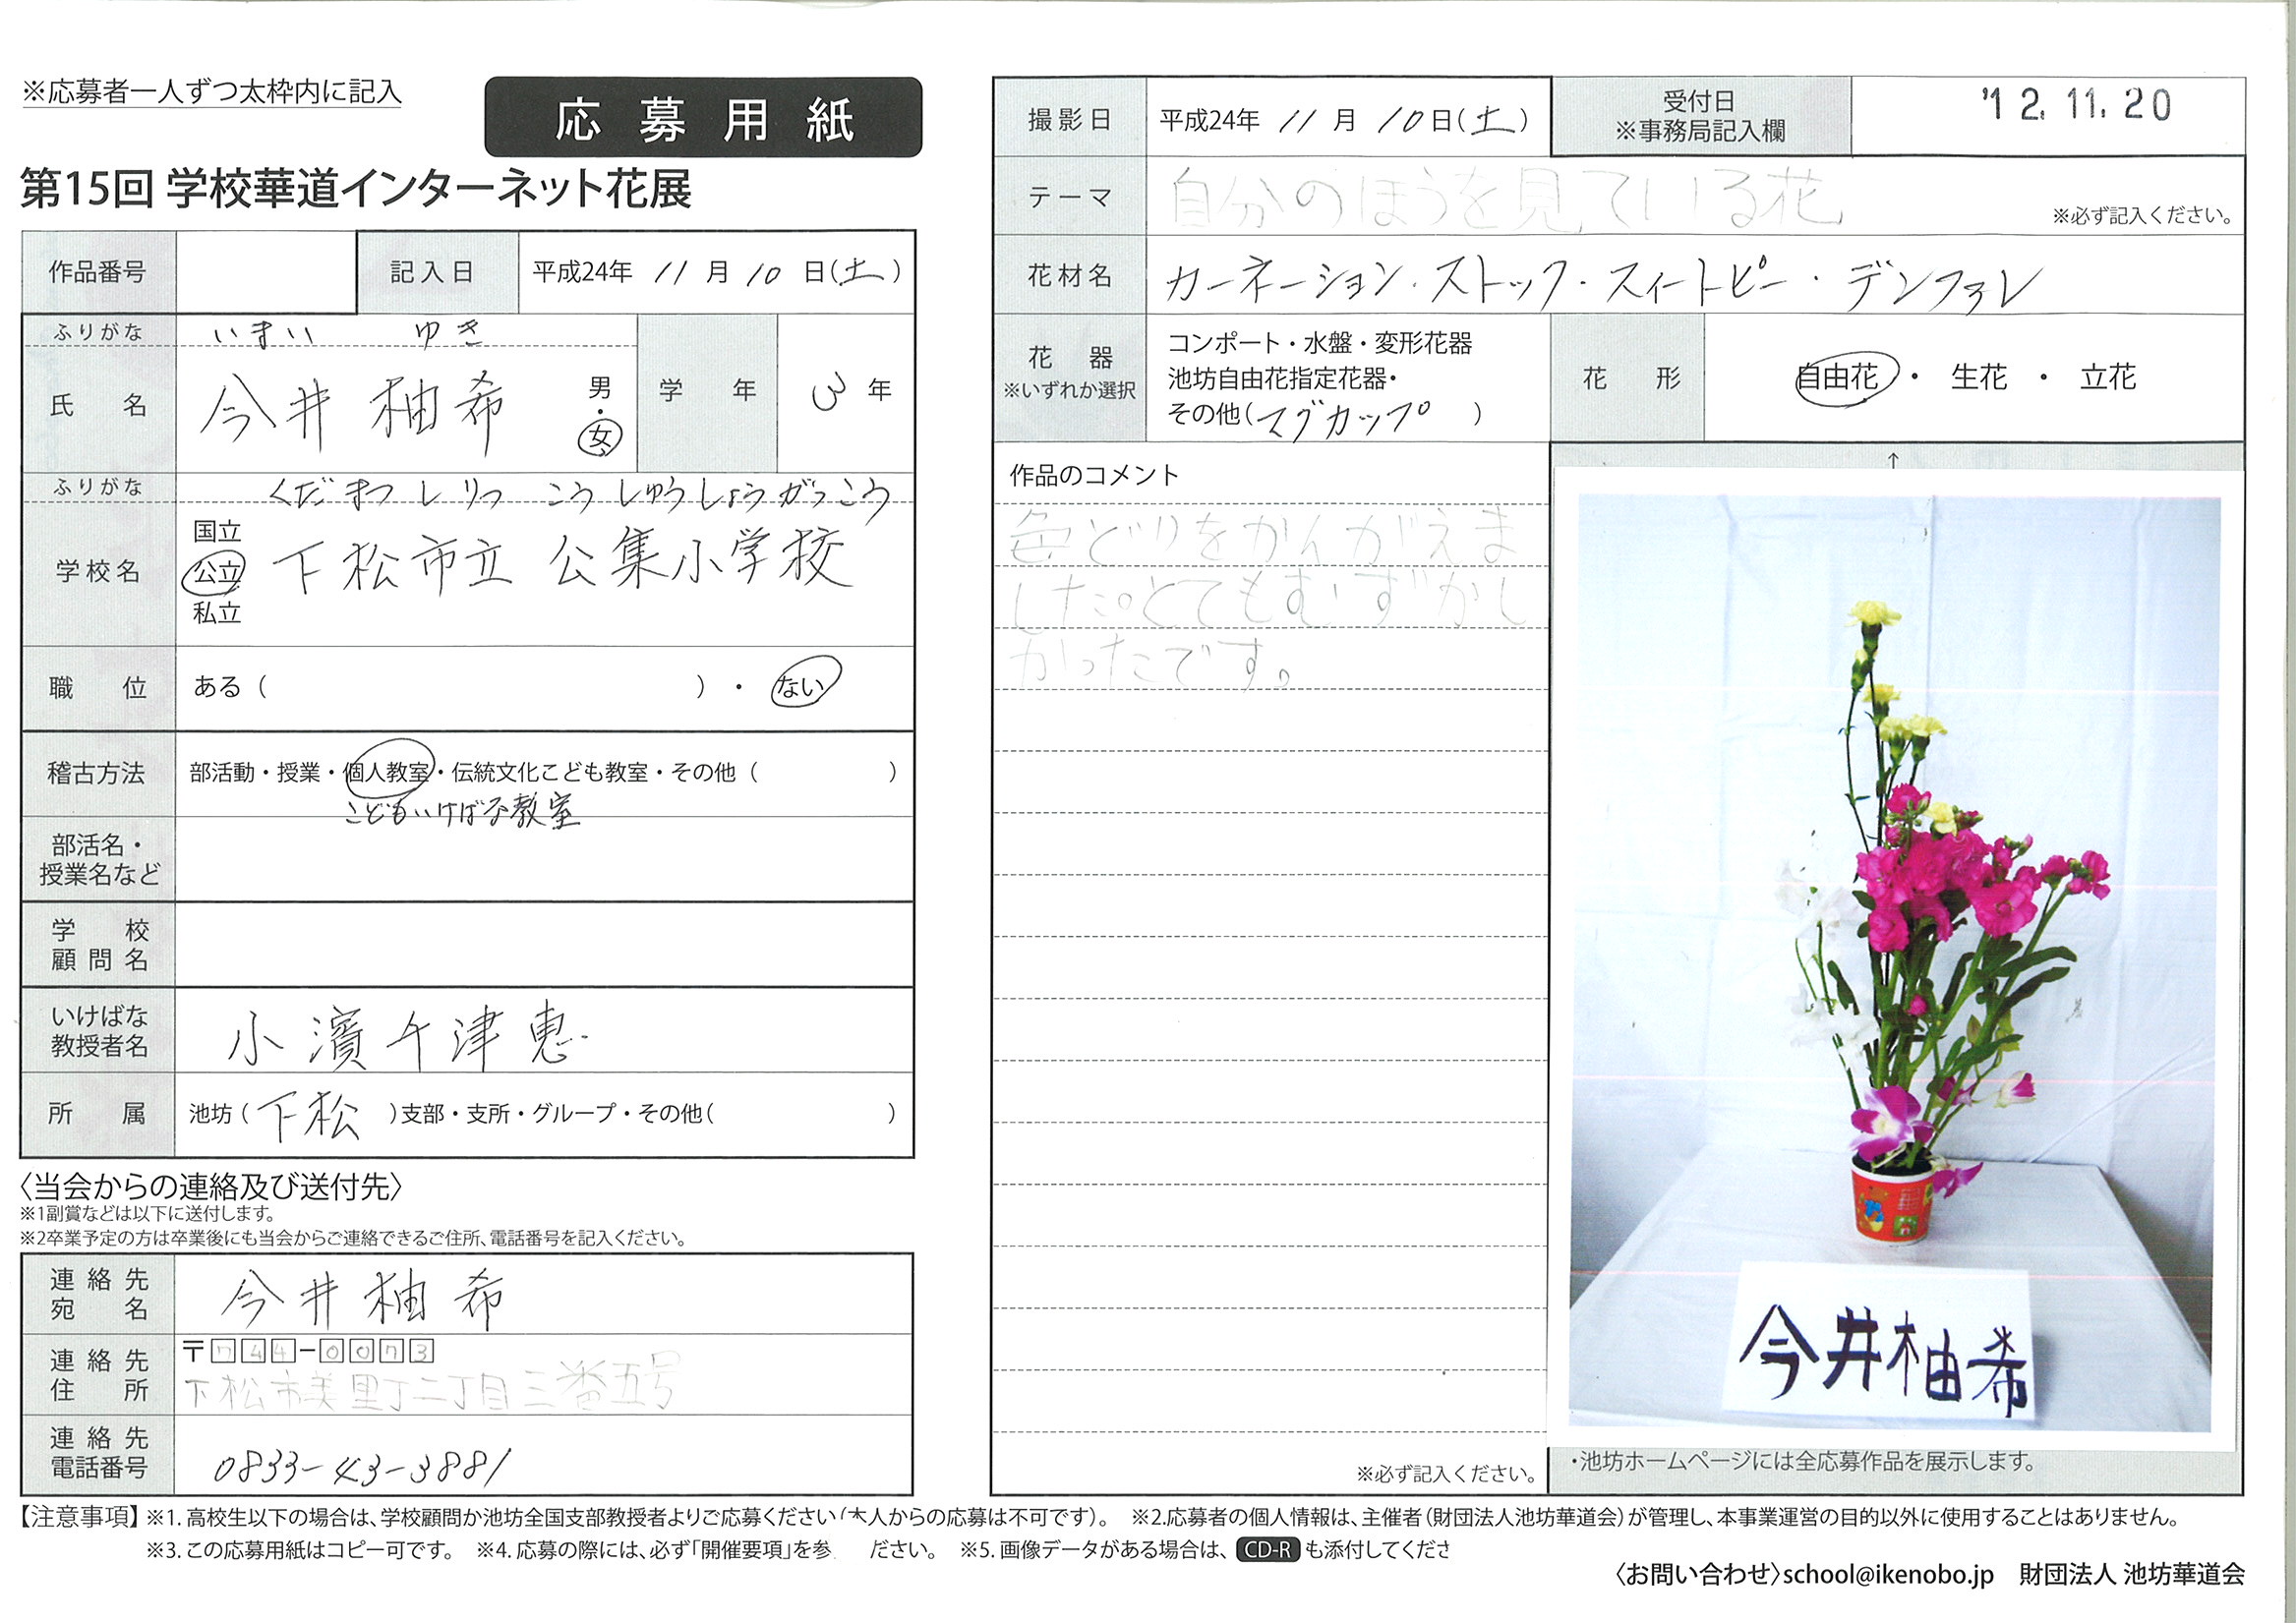 ※応募者一人ずつ太枠内に記入
応募用紙
第15回 学校華道インターネット花展
作品番号
記入日 平成24年 11月 10日(土)
ふりがな いまい ゆき
氏名 今井 柚希 男・女
学年 3年
ふりがな くだまつしりつ こうしゅうしょうがっこう
学校名 国立 公立 私立 下松市立 公集小学校
職位 ある( )・ない
稽古方法 部活動・授業・個人教室・伝統文化こども教室・その他( )
こどもいけばな教室
部活名・
授業名など
学校
顧問名
いけばな
教授者名 小濱千津恵
所属 池坊(下松)支部・支所・グループ・その他( )
〈当会からの連絡及び送付先〉
※1副賞などは以下に送付します。
※2卒業予定の方は卒業後にも当会からご連絡できるご住所、電話番号を記入ください。
連絡先
宛名 今井 柚希
連絡先
住所 〒744-0073
下松市美里町二丁目三番五号
連絡先
電話番号 0833-43-3881
撮影日 平成24年 11月 10日(土)
受付日
※事務局記入欄 '12.11.20
テーマ 自分のほうを見ている花
※必ず記入ください。
花材名 カーネーション・ストック・スィートピー・デンファレ
花器
※いずれか選択
コンポート・水盤・変形花器
池坊自由花指定花器・
その他(マグカップ)
花形 自由花・生花・立花
作品のコメント
色どりをかんがえま
した。とてもむずかし
かったです。
※必ず記入ください。
↑
今井柚希
・池坊ホームページには全応募作品を展示します。
【注意事項】※1.高校生以下の場合は、学校顧問か池坊全国支部教授者よりご応募ください(本人からの応募は不可です)。 ※2.応募者の個人情報は、主催者(財団法人池坊華道会)が管理し、本事業運営の目的以外に使用することはありません。
※3.この応募用紙はコピー可です。 ※4.応募の際には、必ず「開催要項」を参 ださい。 ※5.画像データがある場合は、CD-Rも添付してくださ
〈お問い合わせ〉school@ikenobo.jp 財団法人 池坊華道会